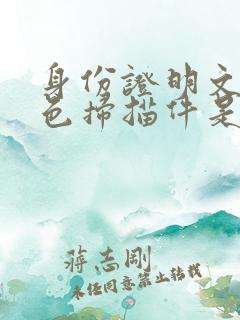 身份證明文
色掃描件是
蔣志剛
未经同意禁止转载